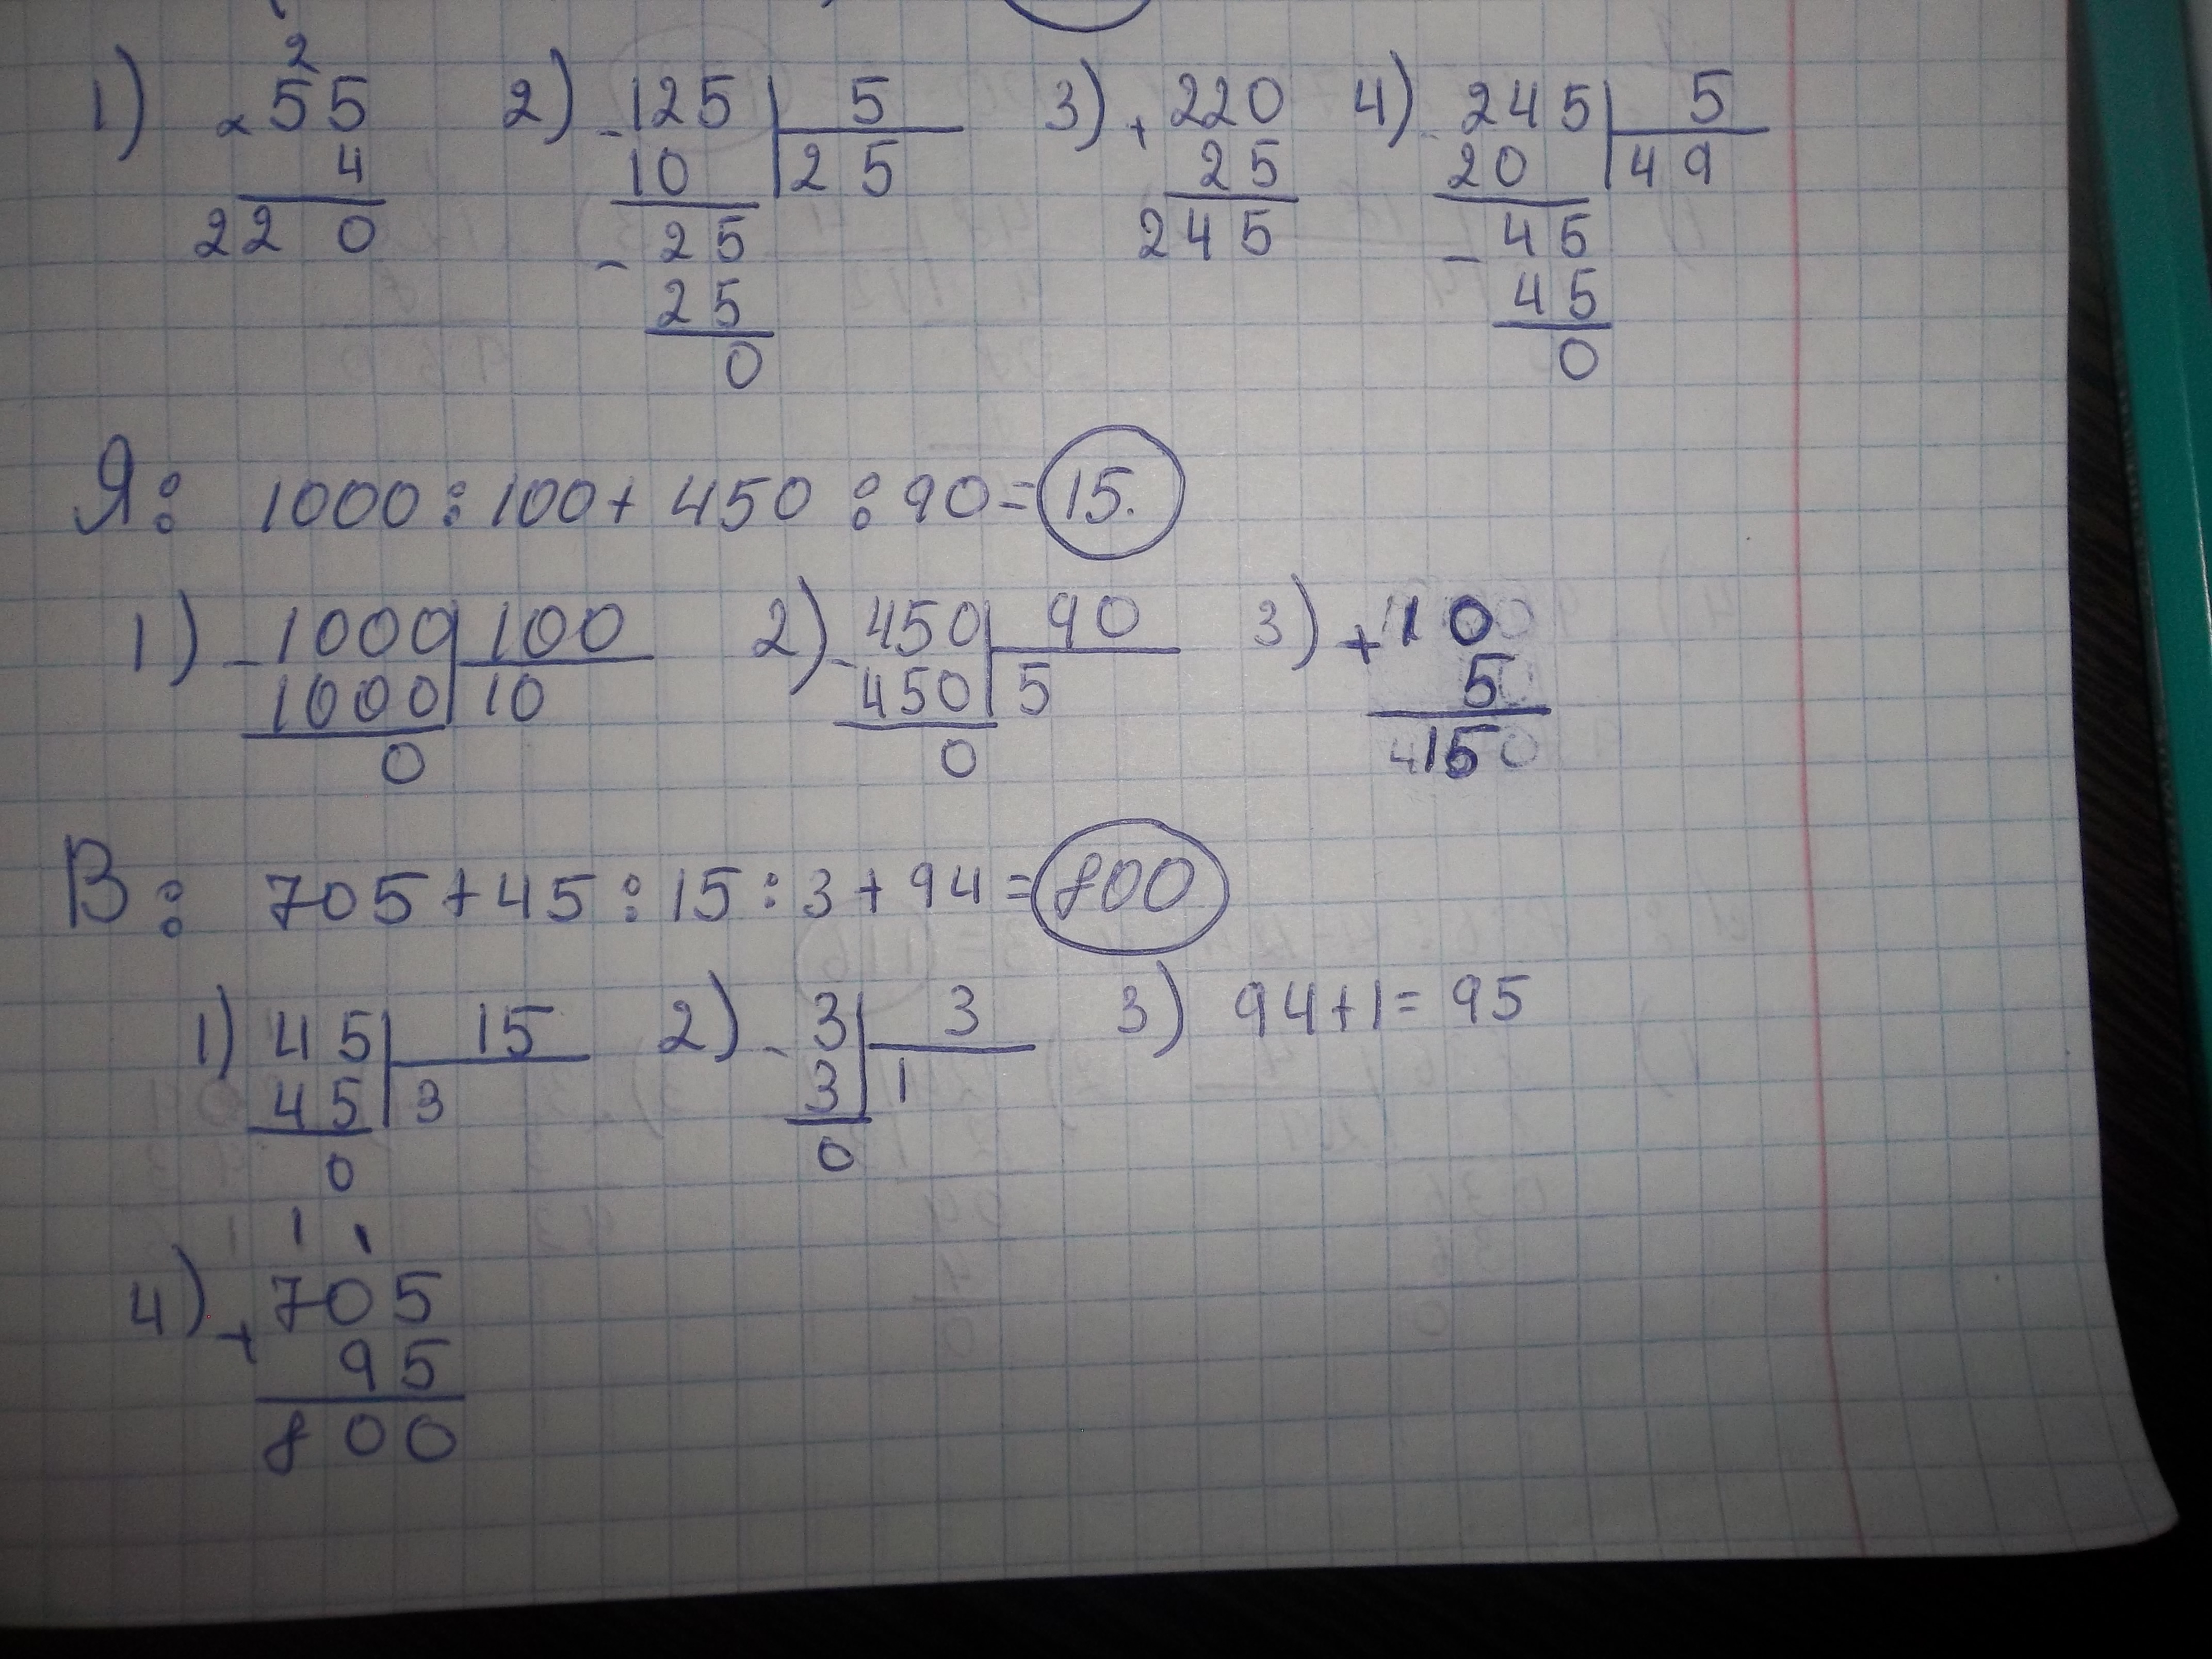 2
1) × 55   2) - 125 | 5   3) + 220   4) - 245 | 5
4   10 | 25   25   20 | 49
220   - 25   245   - 45
25   45
0   0
Я: 1000 : 100 + 450 : 90 = 15.
1) - 1000 | 100   2) - 450 | 90   3) + 10
1000 | 10   450 | 5   5
0   0   15
В: 705 + 45 : 15 : 3 + 94 = 800
1) 45 | 15   2) - 3 | 3   3) 94 + 1 = 95
45 | 3   3 | 1
0   0
1 1
4) + 705
95
800